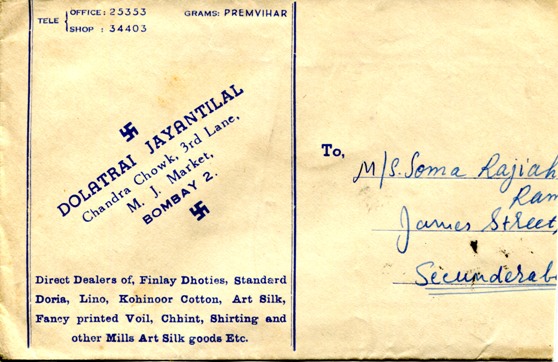 TELE { OFFICE: 25353
SHOP : 34403
GRAMS: PREMVIHAR
卐
DOLATRAI JAYANTILAL
Chandra Chowk, 3rd Lane,
M. J. Market,
BOMBAY 2.
卐
Direct Dealers of, Finlay Dhoties, Standard
Doria, Lino, Kohinoor Cotton, Art Silk,
Fancy printed Voil, Chhint, Shirting and
other Mills Art Silk goods Etc.
To,
M/S. Soma Rajiah
Ram
James Street,
Secunderab